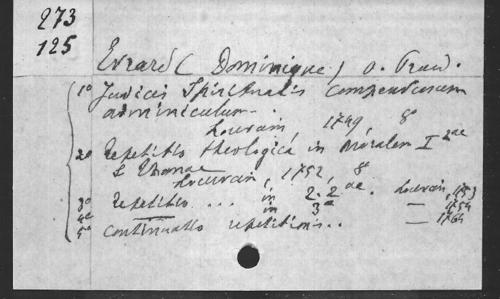 273
125
Evrard (Dominique) o. Praed.
1o Judicis Spiritualis compendiosum
adminiculum..
Louvain, 1749, 8o
2o Repetitio theologica in Moralem I 2ae
S. Thomae
Louvain, 1752, 8o
3o repetitio ... in 2. 2ae. Louvain, 1753
4o — in 3a — 1754
5o continuatio repetitionis.. — 1764